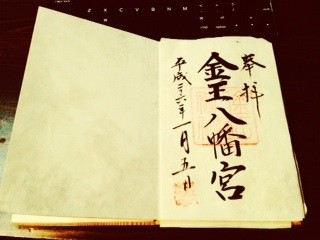 奉拝
金王八幡宮
平成二十六年一月五日